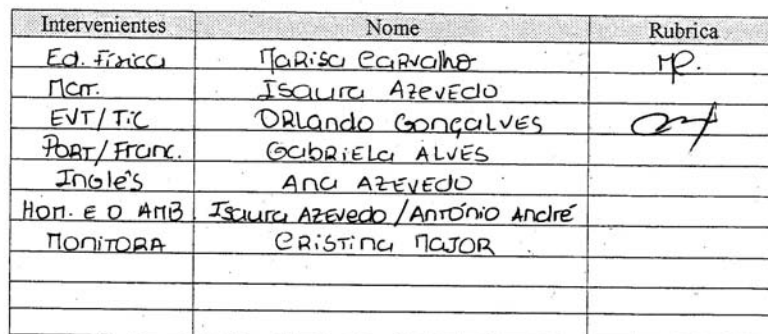 Intervenientes Nome Rubrica
Ed. Física Marisa Carvalho MC.
Mat. Isaura Azevedo
EVT/TIC Orlando Gonçalves
Port/Franc. Gabriela Alves
Inglês Ana Azevedo
Hom. e o Amb Isaura Azevedo/António André
Monitora Cristina Major